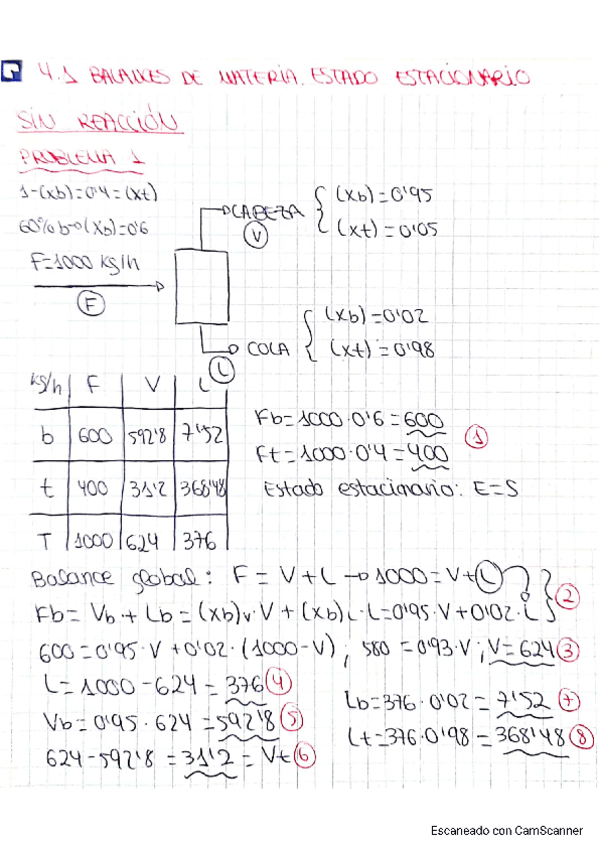 4.1 BALANCES DE MATERIA. ESTADO ESTACIONARIO
SIN REACCIÓN
PROBLEMA 1
1-(xb)=0'4=(xt)
60% b→(xb)=0'6
F=1000 kg/h
F
CABEZA
V
(xb)=0'95
(xt)=0'05
COLA
L
(xb)=0'02
(xt)=0'98
kg/h F V L
b 600 592'8 7'52
t 400 31'2 368'48
T 1000 624 376
Fb=1000·0'6=600
Ft=1000·0'4=400
1
Estado estacionario: E=S
Balance global: F=V+L→1000=V+L ?
Fb=Vb+Lb=(xb)v·V+(xb)L·L=0'95·V+0'02·L
2
600=0'95·V+0'02·(1000-V); 580=0'93·V; V=624 3
L=1000-624=376 4
Vb=0'95·624=592'8 5
624-592'8=31'2=Vt 6
Lb=376·0'02=7'52 7
Lt=376·0'98=368'48 8
Escaneado con CamScanner